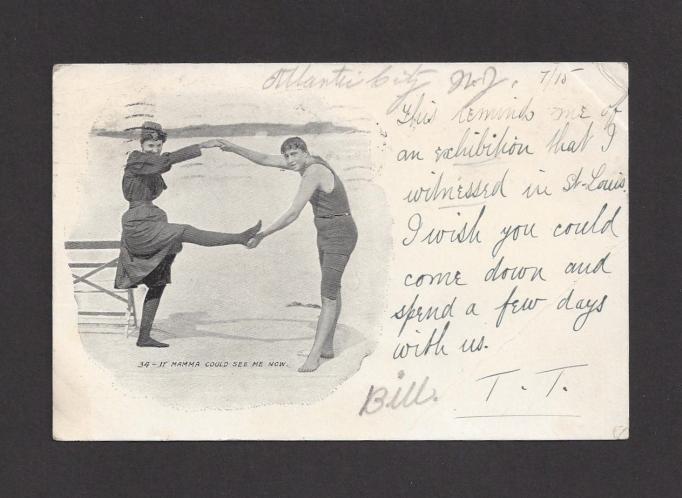 Atlantic City N.J. 7/15
This reminds me of
an exhibition that I
witnessed in St-Louis.
I wish you could
come down and
spend a few days
with us.
T. T.
Bill.
34-IF MAMMA COULD SEE ME NOW.